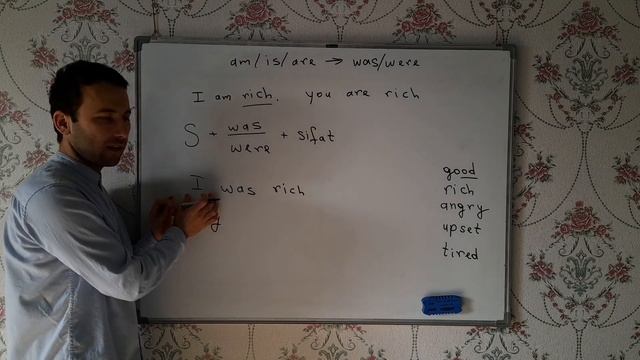 am/is/are → was/were
I am rich. you are rich
S + was/were + sifat
I was rich
good
rich
angry
upset
tired